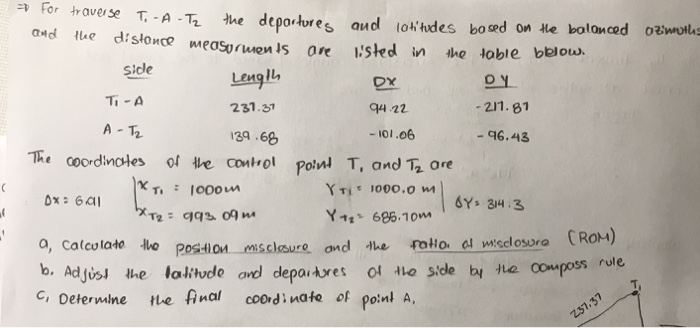 ⇒ For traverse T₁ - A - T₂ the departures and latitudes based on the balanced azimuths
and the distance measurments are listed in the table below.
side Length DX DY
T₁ - A 237.37 94.22 - 217.87
A - T₂ 139.68 - 101.06 - 96.43
The coordinates of the control point T₁ and T₂ are
Δx = 6.91 X T₁ = 1000m Y T₁ = 1000.0 m ΔY = 314.3
X T₂ = 993.09m Y T₂ = 685.70m
a, Calculate the position misclosure and the ratio of misclosure (ROM)
b. Adjust the latitude and departures of the side by the compass rule
C, Determine the final coordinate of point A.
T₁
237.37